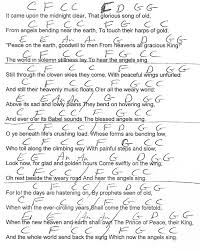 C F C C F D G G
It came upon the midnight clear, That glorious song of old,
C F C C F G C C
From angels bending near the earth, To touch their harps of gold:
E E Am Am G D G G
"Peace on the earth, goodwill to men From heavens all gracious King!"
C F C C F G C C
The world in solemn stillness lay, To hear the angels sing.
C F C C F D G G
Still through the cloven skies they come, With peaceful wings unfurled
C F C C F G C C
And still their heavenly music floats O'er all the weary world:
E E Am Am G D G G
Above its sad and lowly plains, They bend on hovering wing,
C F C C F G C C
And ever o'er its Babel sounds The blessed angels sing.
C F C C F D G G
O ye beneath life's crushing load, Whose forms are bending low,
C F C C F G C C
Who toil along the climbing way With painful steps and slow;
E E Am Am G D G G
Look now, for glad and golden hours Come swiftly on the wing;
C F C C F G C C
Oh rest beside the weary road And hear the angels sing.
C F C C F D G G
For lo! the days are hastening on, By prophets seen of old,
C F C C F G C C
When with the ever-circling years Shall come the time foretold,
E E Am Am G D G G
When the new heaven and earth shall own The Prince of Peace, their King,
C F C C F G C C
And the whole world send back the song Which now the angels sing.